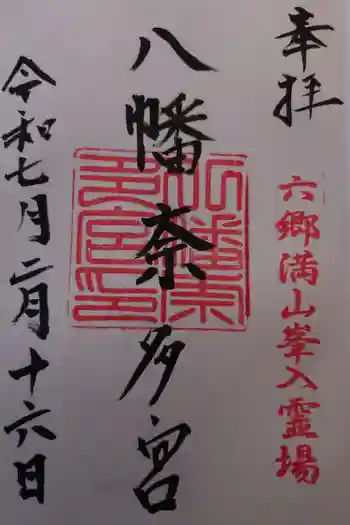 奉拝
六郷満山峯入霊場
八幡奈多宮
八幡奈多宮印
令和七月二月十六日